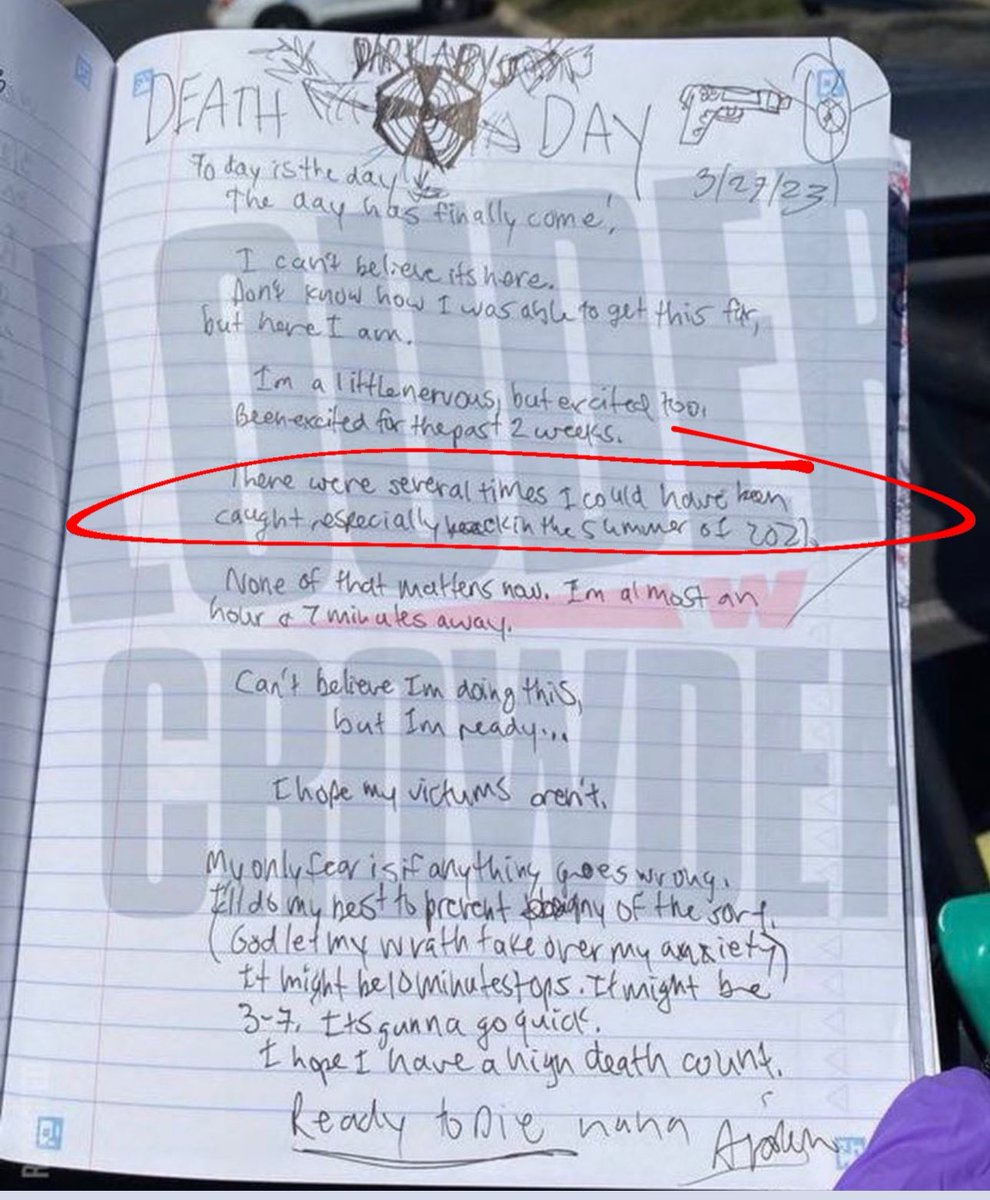 DEATH DAY
3/27/23
To day is the day
The day has finally come!
I can't believe its here.
Don't know how I was able to get this far,
but here I am.
Im a little nervous, but excited too.
Been excited for the past 2 weeks.
There were several times I could have been
caught, especially back in the summer of 2021.
None of that matters now. Im almost an
hour & 7 minutes away.
Can't believe Im doing this,
but Im ready...
I hope my victums aren't.
My only fear is if anything goes wrong.
I'll do my best to prevent any of the sort.
(God let my wrath take over my anxiety)
It might be 10 minutes tops. It might be
3-7. Its gunna go quick.
I hope I have a high death count.
Ready to Die haha
LOUDER
W
CROWDER